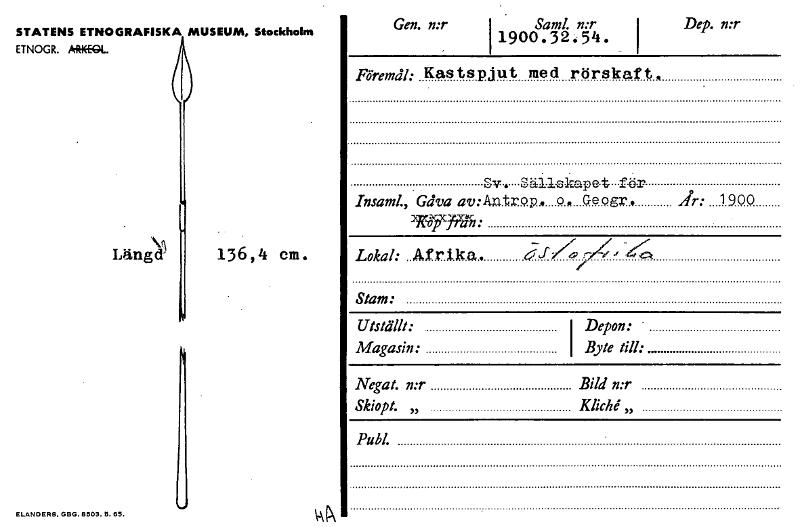 STATENS ETNOGRAFISKA MUSEUM, Stockholm
ETNOGR. ARKEOL.
Längd 136,4 cm.
ELANDERS, GBG. 8503. 5. 65.
HA
Gen. n:r Saml. n:r Dep. n:r
1900.32.54.
Föremål: Kastspjut med rörskaft.
Sv. Sällskapet för
Insaml., Gåva av: Antrop. o. Geogr. År: 1900
Köp från:
Lokal: Afrika. östafrika
Stam:
Utställt: Depon:
Magasin: Byte till:
Negat. n:r Bild n:r
Skiopt. „ Kliché „
Publ.